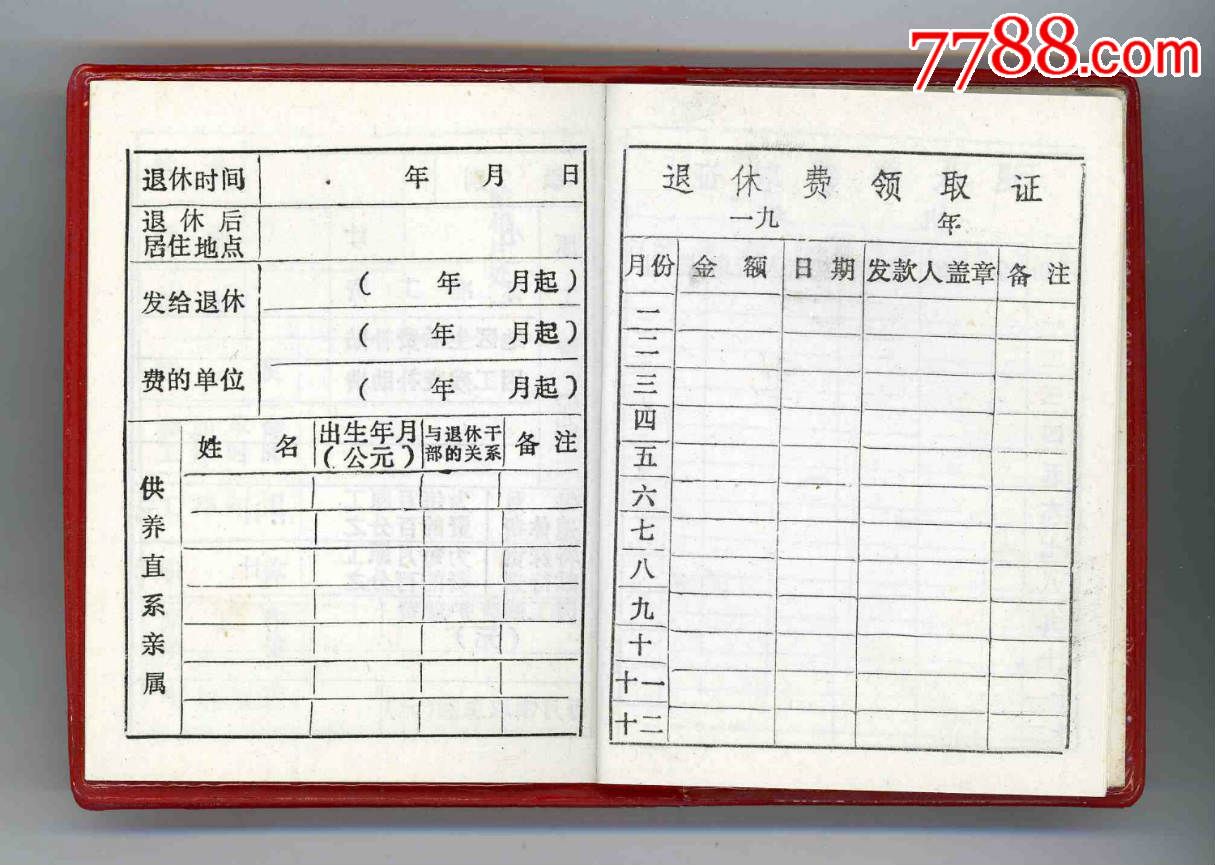 7788.com
退休时间 年 月 日
退休后
居住地点
发给退休
费的单位
( 年 月起)
( 年 月起)
( 年 月起)
供养直系亲属
姓 名
出生年月
(公元)
与退休干
部的关系
备注
退休费领取证
一九 年
月份 金额 日期 发款人盖章 备注
一
二
三
四
五
六
七
八
九
十
十一
十二